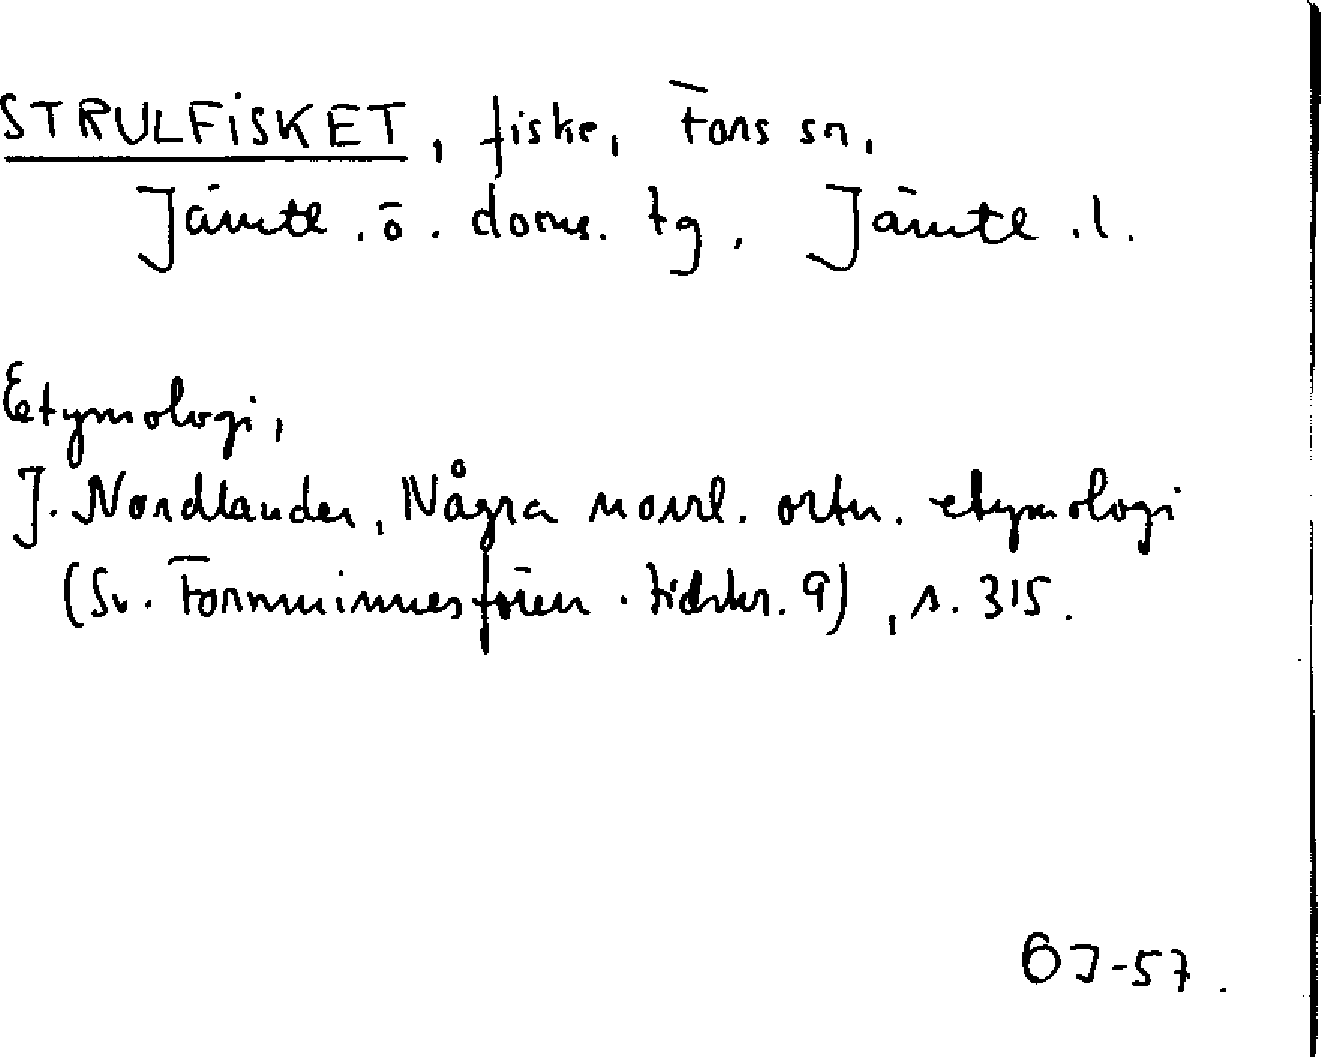 STRULFISKET, fiske, Fors sn,
Jämtl. ö. doms. tg, Jämtl. l.
Etymologi,
J. Nordlander, Några norrl. ortn. etymologi
(Sv. Fornminnesfören. tidskr. 9), s. 315.
ÖJ-57.